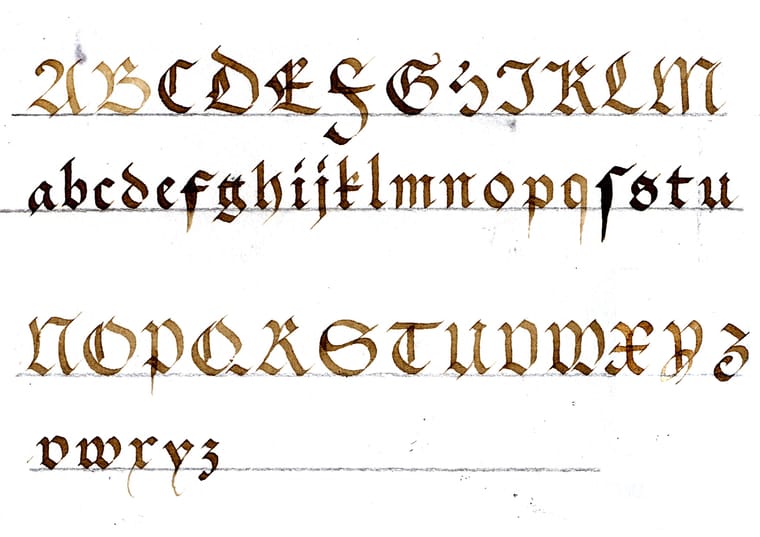 ABCDEFGHIKLM
abcdefghijklmnopqſstu
NOPQRSTUVWXYZ
vwxyz